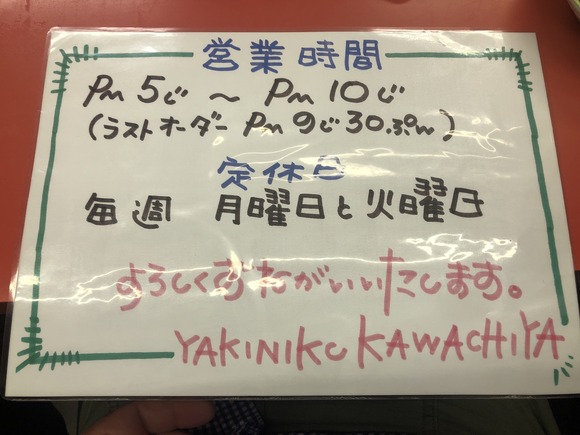 営業時間
Pm 5じ 〜 Pm 10じ
(ラストオーダー Pm 9じ30.ぷん)
定休日
毎週 月曜日と火曜日
よろしくおねがいいたします。
YAKINIKU KAWACHIYA